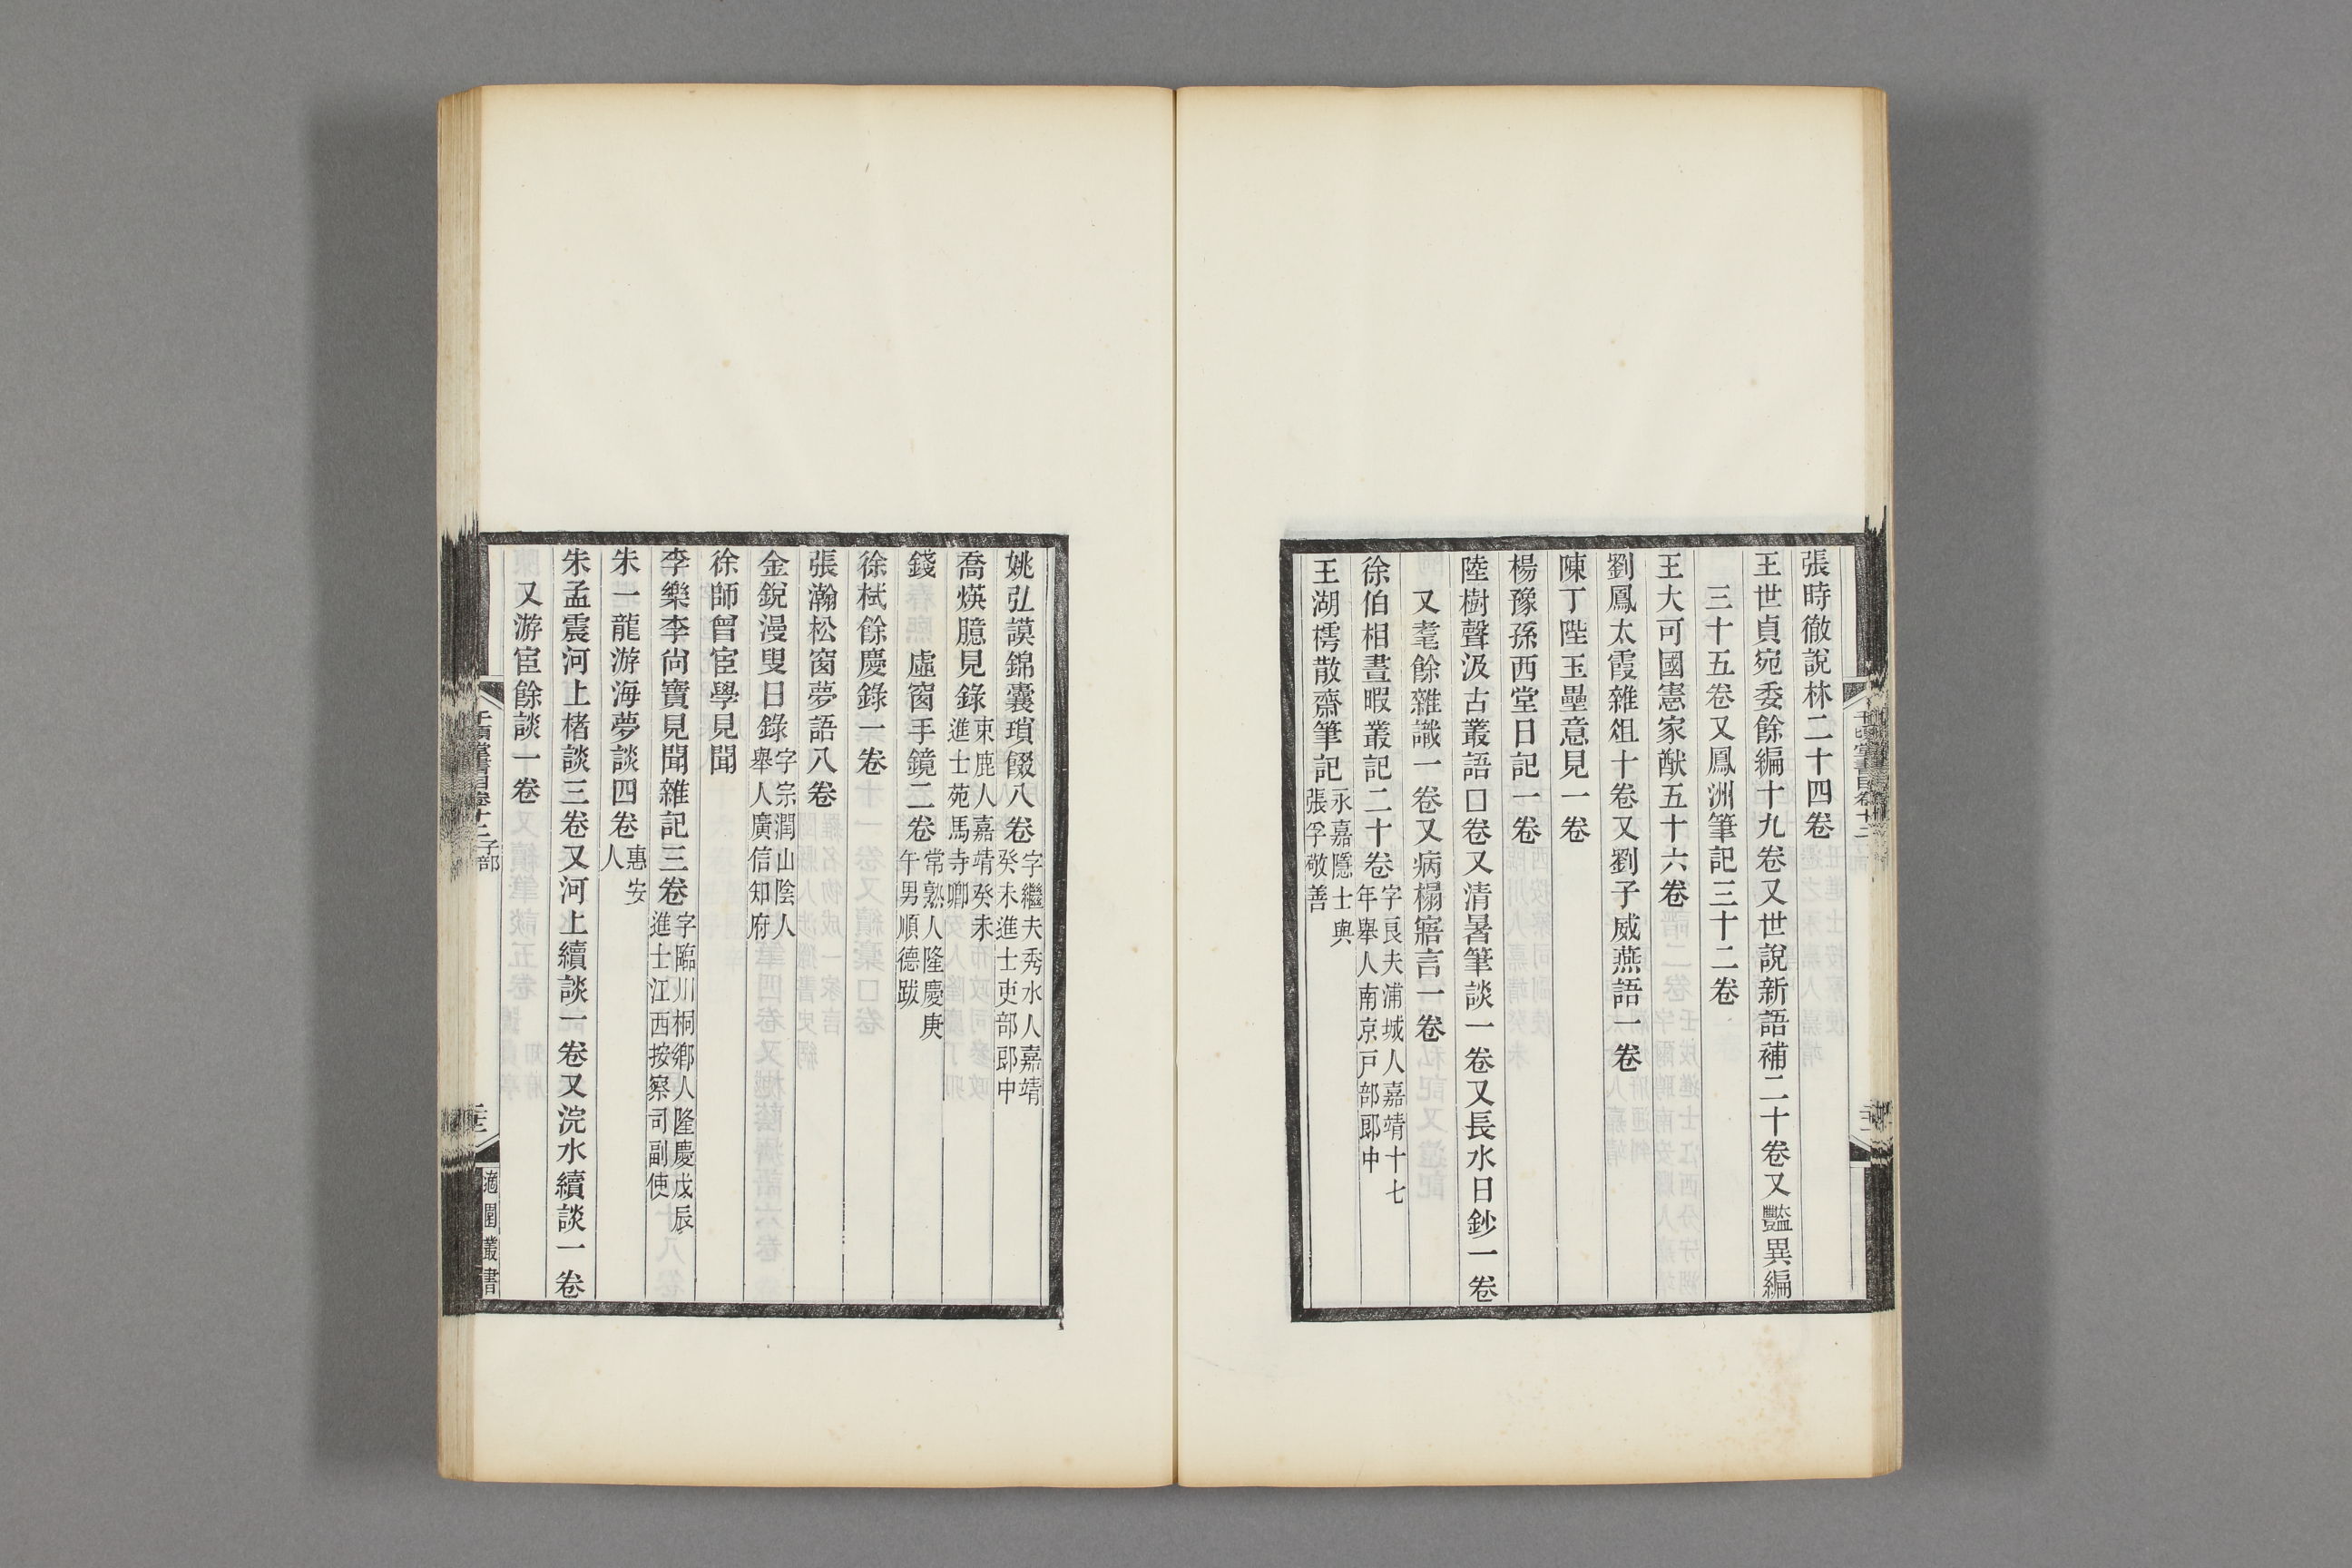 張時徹說林二十四卷
王世貞宛委餘編十九卷又世說新語補二十卷又豔異編
三十五卷又鳳洲筆記三十二卷
王大可國憲家猷五十六卷
劉鳳太霞雜俎十卷又劉子威燕語一卷
陳丁陛玉壘意見一卷
楊豫孫西堂日記一卷
陸樹聲汲古叢語口卷又清暑筆談一卷又長水日鈔一卷
又耄餘雜識一卷又病榻寤言一卷
徐伯相晝暇叢記二十卷字良夫浦城人嘉靖十七年舉人南京戶部郎中
王湖樗散齋筆記永嘉隱士與張孚敬善
姚弘謨錦囊瑣綴八卷字繼夫秀水人嘉靖癸未進士吏部郎中
喬煐臆見錄東鹿人嘉靖癸未進士苑馬寺卿
錢　虛窗手鏡二卷常熟人隆慶庚午男順德跋
徐栻餘慶錄一卷
張瀚松窗夢語八卷
金銳漫叟日錄字宗潤山陰人舉人廣信知府
徐師曾宦學見聞
李樂李尚寶見聞雜記三卷字臨川桐鄉人隆慶戊辰進士江西按察司副使
朱一龍游海夢談四卷惠安人
朱孟震河上楮談三卷又河上續談一卷又浣水續談一卷
又游宦餘談一卷
千頃堂書目卷十二子部
適園叢書